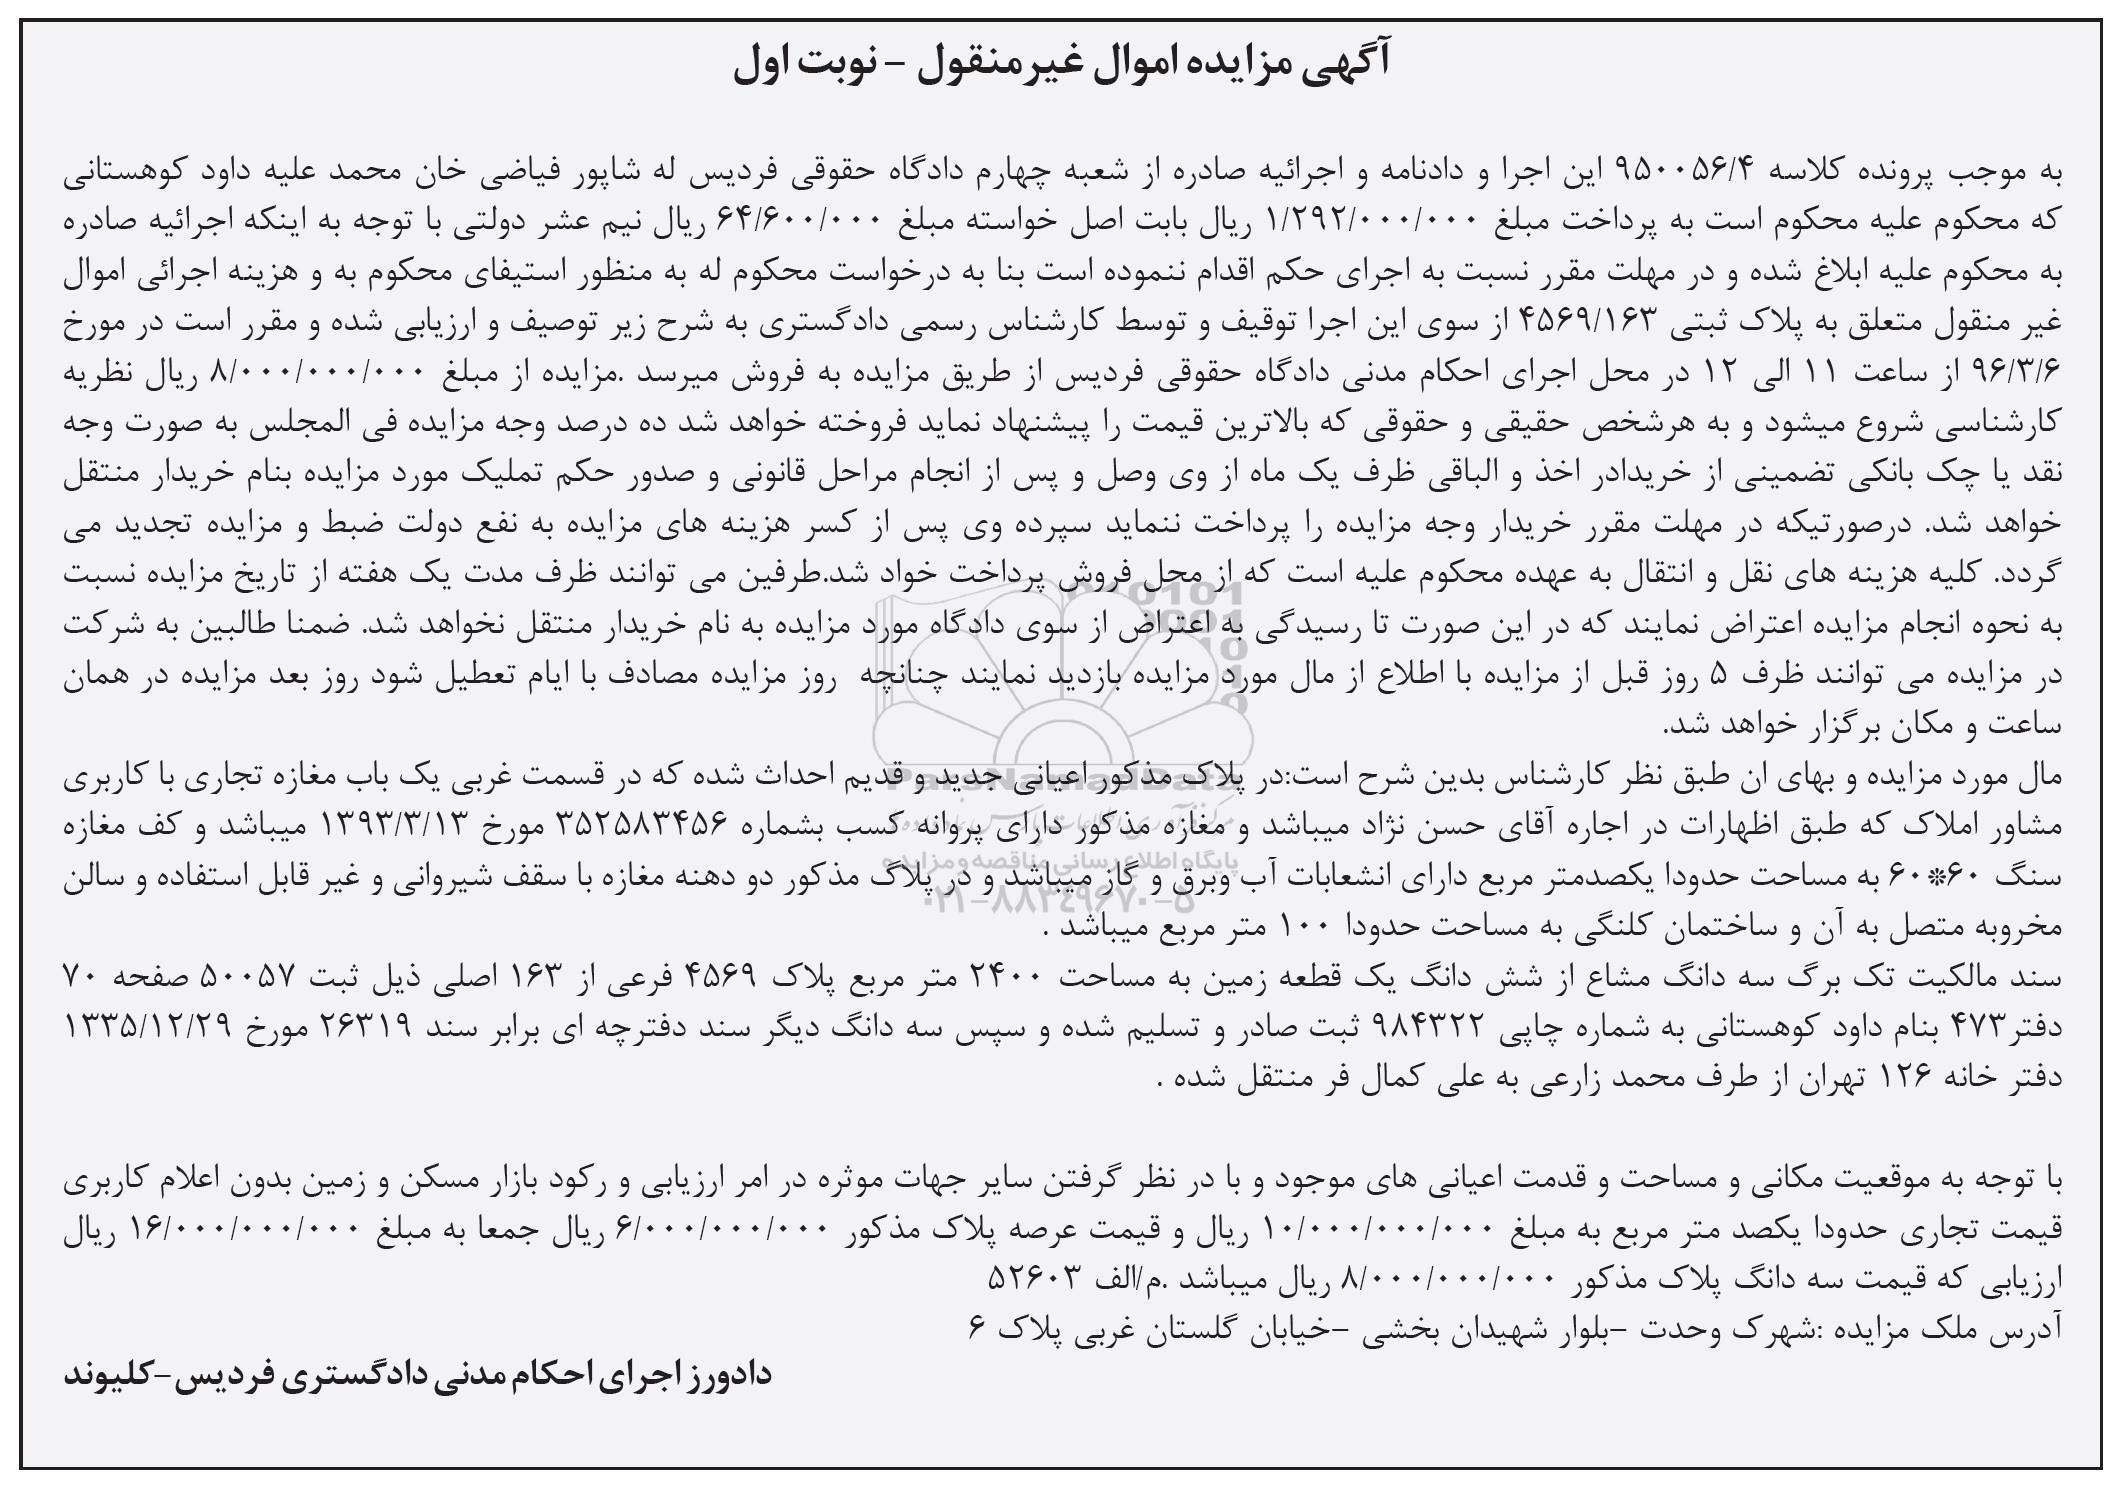 آگهی مزایده اموال غیرمنقول - نوبت اول
به موجب پرونده کلاسه ۹۵۰۰۵۶/۴ این اجرا و دادنامه و اجرائیه صادره از شعبه چهارم دادگاه حقوقی فردیس له شاپور فیاضی خان محمد علیه داود کوهستانی
که محکوم علیه محکوم است به پرداخت مبلغ ۱/۲۹۲/۰۰۰/۰۰۰ ریال بابت اصل خواسته مبلغ ۶۴/۶۰۰/۰۰۰ ریال نیم عشر دولتی با توجه به اینکه اجرائیه صادره
به محکوم علیه ابلاغ شده و در مهلت مقرر نسبت به اجرای حکم اقدام ننموده است بنا به درخواست محکوم له به منظور استیفای محکوم به و هزینه اجرائی اموال
غیر منقول متعلق به پلاک ثبتی ۴۵۶۹/۱۶۳ از سوی این اجرا توقیف و توسط کارشناس رسمی دادگستری به شرح زیر توصیف و ارزیابی شده و مقرر است در مورخ
۹۶/۳/۶ از ساعت ۱۱ الی ۱۲ در محل اجرای احکام مدنی دادگاه حقوقی فردیس از طریق مزایده به فروش میرسد .مزایده از مبلغ ۸/۰۰۰/۰۰۰/۰۰۰ ریال نظریه
کارشناسی شروع میشود و به هرشخص حقیقی و حقوقی که بالاترین قیمت را پیشنهاد نماید فروخته خواهد شد ده درصد وجه مزایده فی المجلس به صورت وجه
نقد یا چک بانکی تضمینی از خریدادر اخذ و الباقی ظرف یک ماه از وی وصل و پس از انجام مراحل قانونی و صدور حکم تملیک مورد مزایده بنام خریدار منتقل
خواهد شد. درصورتیکه در مهلت مقرر خریدار وجه مزایده را پرداخت ننماید سپرده وی پس از کسر هزینه های مزایده به نفع دولت ضبط و مزایده تجدید می
گردد. کلیه هزینه های نقل و انتقال به عهده محکوم علیه است که از محل فروش پرداخت خواد شد.طرفین می توانند ظرف مدت یک هفته از تاریخ مزایده نسبت
به نحوه انجام مزایده اعتراض نمایند که در این صورت تا رسیدگی به اعتراض از سوی دادگاه مورد مزایده به نام خریدار منتقل نخواهد شد. ضمنا طالبین به شرکت
در مزایده می توانند ظرف ۵ روز قبل از مزایده با اطلاع از مال مورد مزایده بازدید نمایند چنانچه روز مزایده مصادف با ایام تعطیل شود روز بعد مزایده در همان
ساعت و مکان برگزار خواهد شد.
مال مورد مزایده و بهای ان طبق نظر کارشناس بدین شرح است:در پلاک مذکور اعیانی جدید و قدیم احداث شده که در قسمت غربی یک باب مغازه تجاری با کاربری
ParsNamadData
مشاور املاک که طبق اظهارات در اجاره آقای حسن نژاد میباشد و مغازه مذکور دارای پروانه کسب بشماره ۳۵۲۵۸۳۴۵۶ مورخ ۱۳۹۳/۳/۱۳ میباشد و کف مغازه
پایگاه اطلاع رسانی مناقصه و مزایده
سنگ ۶۰*۶۰ به مساحت حدودا یکصدمتر مربع دارای انشعابات آب وبرق و گاز میباشد و در پلاگ مذکور دو دهنه مغازه با سقف شیروانی و غیر قابل استفاده و سالن
۰۲۱-۸۸۳۴۹۶۷۰-۵
مخروبه متصل به آن و ساختمان کلنگی به مساحت حدودا ۱۰۰ متر مربع میباشد .
سند مالکیت تک برگ سه دانگ مشاع از شش دانگ یک قطعه زمین به مساحت ۲۴۰۰ متر مربع پلاک ۴۵۶۹ فرعی از ۱۶۳ اصلی ذیل ثبت ۵۰۰۵۷ صفحه ۷۰
دفتر۴۷۳ بنام داود کوهستانی به شماره چاپی ۹۸۴۳۲۲ ثبت صادر و تسلیم شده و سپس سه دانگ دیگر سند دفترچه ای برابر سند ۲۶۳۱۹ مورخ ۱۳۳۵/۱۲/۲۹
دفتر خانه ۱۲۶ تهران از طرف محمد زارعی به علی کمال فر منتقل شده .
با توجه به موقعیت مکانی و مساحت و قدمت اعیانی های موجود و با در نظر گرفتن سایر جهات موثره در امر ارزیابی و رکود بازار مسکن و زمین بدون اعلام کاربری
قیمت تجاری حدودا یکصد متر مربع به مبلغ ۱۰/۰۰۰/۰۰۰/۰۰۰ ریال و قیمت عرصه پلاک مذکور ۶/۰۰۰/۰۰۰/۰۰۰ ریال جمعا به مبلغ ۱۶/۰۰۰/۰۰۰/۰۰۰ ریال
ارزیابی که قیمت سه دانگ پلاک مذکور ۸/۰۰۰/۰۰۰/۰۰۰ ریال میباشد .م/الف ۵۲۶۰۳
آدرس ملک مزایده :شهرک وحدت -بلوار شهیدان بخشی -خیابان گلستان غربی پلاک ۶
دادورز اجرای احکام مدنی دادگستری فردیس-کلیوند